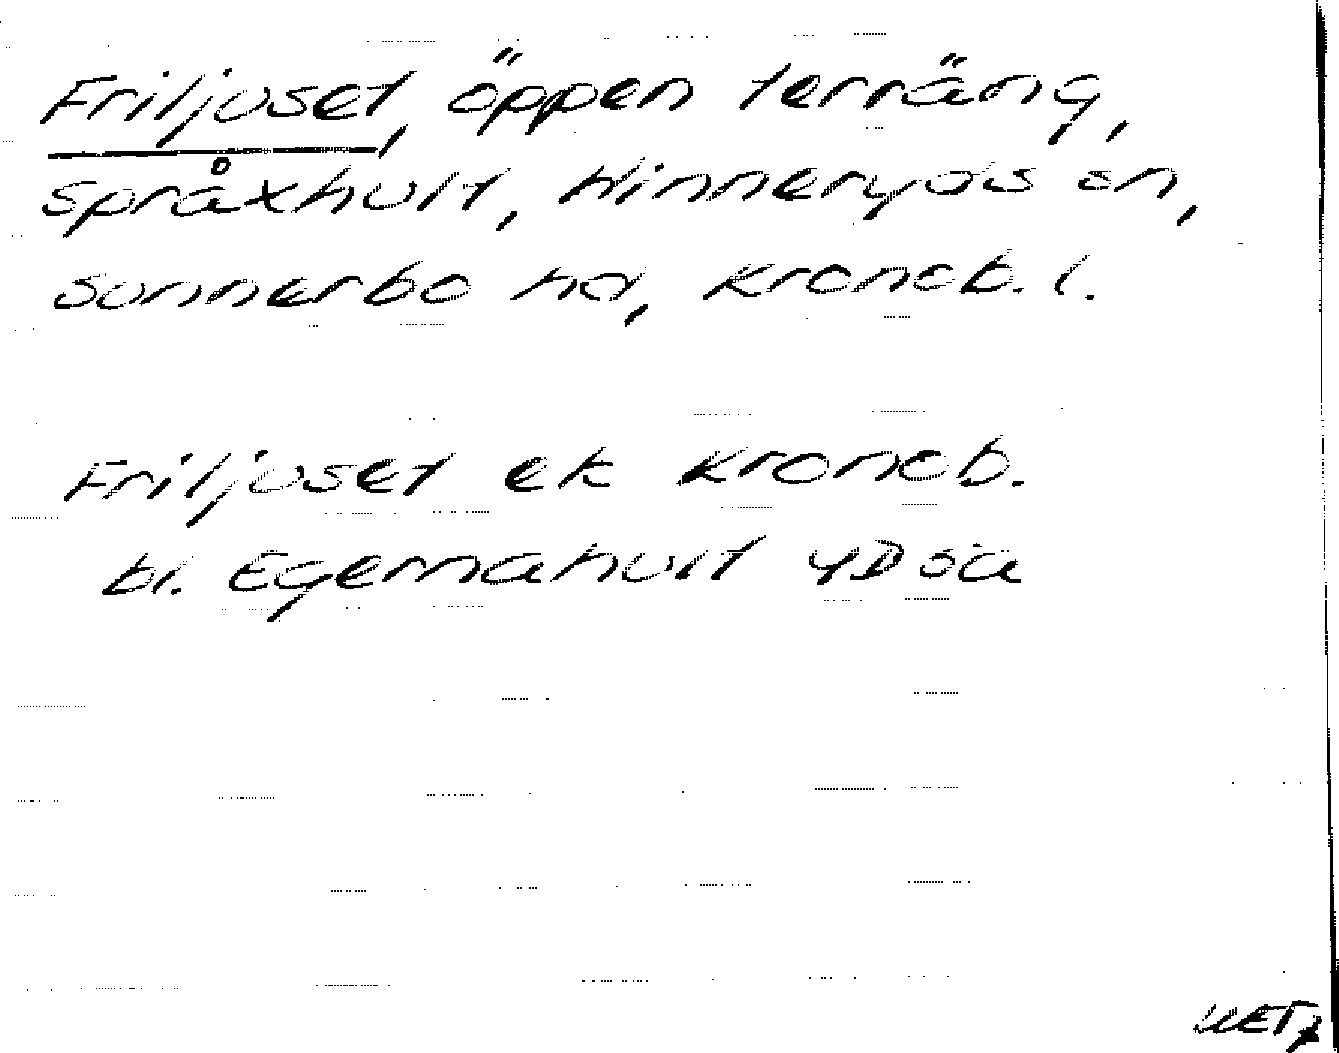 Friljuset, öppen terräng,
språxhult, Hinneryds sn,
sunnerbo hd, Kronob. l.
Friljuset ek Kronob.
bl. Egernahult 4D öa